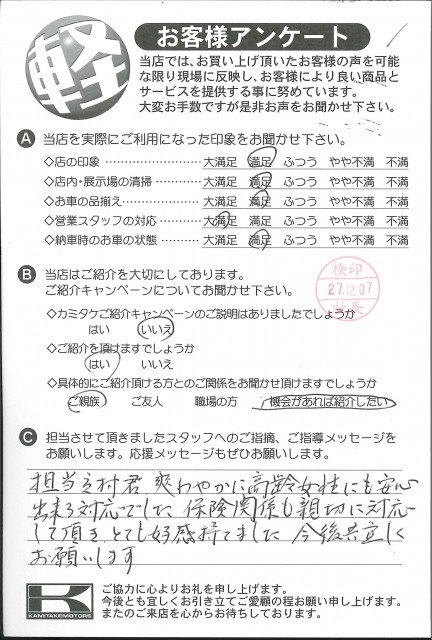 軽
お客様アンケート
当店では、お買い上げ頂いたお客様の声を可能
な限り現場に反映し、お客様により良い商品と
サービスを提供する事に努めています。
大変お手数ですが是非お声をお聞かせ下さい。
A 当店を実際にご利用になった印象をお聞かせ下さい。
◇店の印象 ………………… 大満足 満足 ふつう やや不満 不満
◇店内・展示場の清掃 ………… 大満足 満足 ふつう やや不満 不満
◇お車の品揃え ……………… 大満足 満足 ふつう やや不満 不満
◇営業スタッフの対応 ………… 大満足 満足 ふつう やや不満 不満
◇納車時のお車の状態 ………… 大満足 満足 ふつう やや不満 不満
B 当店はご紹介を大切にしております。
ご紹介キャンペーンについてお聞かせ下さい。
検印
27.12.07
社長
◇カミタケご紹介キャンペーンのご説明はありましたでしょうか
はい いいえ
◇ご紹介を頂けますでしょうか
はい いいえ
◇具体的にご紹介頂ける方とのご関係をお聞かせ頂けますでしょうか
ご親族 ご友人 職場の方 機会があれば紹介したい
C 担当させて頂きましたスタッフへのご指摘、ご指導メッセージを
お願いします。応援メッセージもぜひお願いします。
担当 村君 爽わやかに高齢女性にも安心
出来る対応でした 保険関係も親切に対応
して頂き とても好感持てました 今後共宜しく
お願いします
K
KAMITAKE MOTORS
ご協力に心よりお礼を申し上げます。
今後とも宜しくお引き立てご愛顧の程お願い申し上げます。
またのご来店を心からお待ちしております。